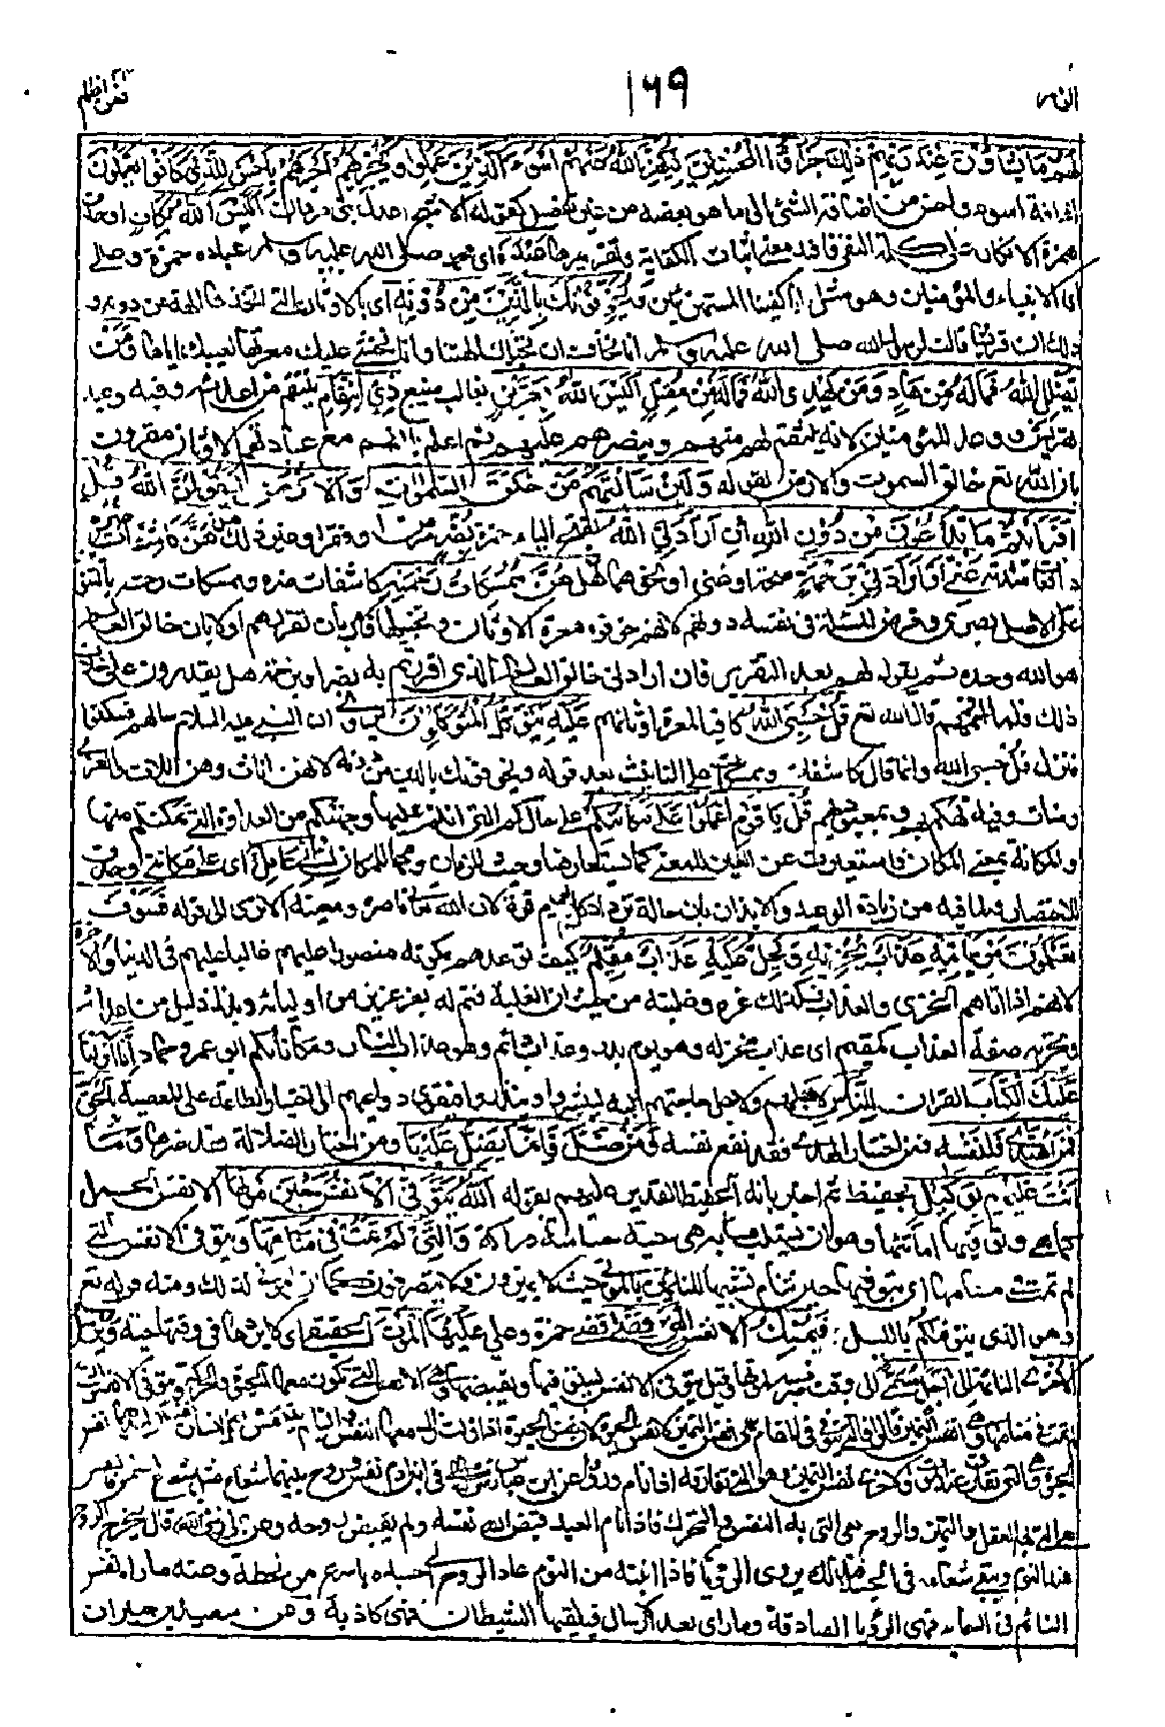 الزمر ١٦٩ فمن اظلم
لهم ما يشاؤن عند ربهم ذلك جزاؤا المحسنين ليكفر الله عنهم اسوء الذين عملوا ويجزيهم اجرهم باحسن الذي كانوا يعملون
اضافة اسوء واحسن من اضافة الشئ الى ما هو بعضه من غير تفضيل كقوله الاشج اعدل بنى مروان اليس الله بكاف ادخلت
همزة الانكار على كلمة النفى فافيد معنى اثبات الكفاية وتقريرها عبده اى محمد صلى الله عليه وسلم عباده حمزة وعلى
اى الانبياء والمؤمنين وهو مثل انا كفيناك المستهزئين ويخوفونك بالذين من دونه اى بالاوثان التى اتخذوها الهة من دونه و
ذلك ان قريشا قالت لرسول الله صلى الله عليه وسلم انا نخاف ان تخبلك الهتنا وانا نخشى عليك معرتها لعيبك اياها ومن
يضلل الله فما له من هاد ومن يهدى الله فما له من مضل اليس الله بعزيز بغالب منيع ذى انتقام ينتقم من اعدائه وفيه وعيد
لقريش ووعد للمؤمنين لانه ينتقم لهم منهم وينصرهم عليهم ثم اعلم بانهم مع عبادتهم الاوثان مقرون
بان الله تع خالق السموت والارض بقوله ولئن سالتهم من خلق السموات والارض ليقولن الله قل
افرايتم ما تدعون من دون الله ان ارادنى الله بفتح الياء حمزة بضر مرض او فقر او غير ذلك هل هن كاشفات ضره
دافعات شدته عنى او ارادنى برحمة صحة او غنى او نحوهما هل هن ممسكات رحمته كاشفات ضره وممسكات رحمته بالتنوين
على الاصل بصرى وفرض المسئلة فى نفسه دونهم لانهم خوفوه معرة الاوثان وتخبيلها فامر بان يقررهم اولا بان خالق العالم
هو الله وحده ثم يقول لهم بعد التقرير فان ارادنى خالق العالم الذى اقررتم به بضر او برحمة هل يقدرون على خلاف
ذلك فلما افحمهم قال الله تع قل حسبى الله كافيا لمعرة اوثانهم عليه يتوكل المتوكلون يروى ان النبى عليه السلام سالهم فسكتوا
فنزل قل حسبى الله وانما قال كاشفات وممسكات على التانيث بعد قوله ويخوفونك بالذين من دونه لانهن اناث وهن اللات والعزى
ومنات وفيه تهكم بهم وبمعبوديهم قل يا قوم اعملوا على مكانتكم على حالكم التى انتم عليها وجهتكم من العداوة التى تمكنتم منها
والمكانة بمعنى المكان فاستعيرت عن العين للمعنى كما يستعار هنا وحيث للزمان وهما للمكان انى عامل اى على مكانتى وحذف
للاختصار ولما فيه من زيادة الوعيد والايذان بان حالته تزداد كل يوم قوة لان الله تعالى ناصره ومعينه الا ترى الى قوله فسوف
تعلمون من ياتيه عذاب يخزيه ويحل عليه عذاب مقيم كيف توعدهم بكونه منصورا عليهم غالبا عليهم فى الدنيا والاخرة
لانهم اذا اتاهم الخزى والعذاب فذلك عزه وغلبته من حيث ان الغلبة تتم له بعز عزيز من اوليائه وبذل ذليل من اعدائه
ويخزيه صفة العذاب كمقيم اى عذاب مخز له وهو يوم بدر وعذاب دائم وهو عذاب النار ومكاناتكم ابو عمرو وحماد انا انزلنا
عليك الكتاب القران للناس لاجلهم ولاجل حاجتهم اليه ليبشروا وينذروا فتقوى دواعيهم الى اختيار الطاعة على المعصية بالحق
فمن اهتدى فلنفسه فمن اختار الهدى فقد نفع نفسه ومن ضل فانما يضل عليها ومن اختار الضلالة فقد ضرها وما
انت عليهم بوكيل بحفيظ ثم اخبر بانه الحفيظ القدير عليهم بقوله الله يتوفى الانفس حين موتها الانفس الجمل
كما هى وتوفيها اماتتها وهو ان يسلب ما به هى حية حساسة دراكة والتى لم تمت فى منامها ويتوفى الانفس التى
لم تمت فى منامها اى يتوفيها حين تنام تشبيها للنائمين بالموتى حيث لا يميزون ولا يتصرفون كما ان الموتى كذلك ومنه قوله تع
وهو الذى يتوفاكم بالليل فيمسك الانفس التى قضى قضى حمزة وعلى عليها الموت الحقيقى اى لا يردها فى وقتها حية ويرسل
الاخرى النائمة الى اجل مسمى الى وقت ضربه لموتها وقيل يتوفى الانفس يستوفيها ويقبضها وهى الانفس التى تكون معها الحيوة والحركة ويتوفى الانفس التى
لم تمت فى منامها وهى انفس التمييز قالوا فالتى تتوفى فى المنام هى نفس التمييز لا نفس الحيوة لان نفس الحيوة اذا زالت زال معها النفس والنائم يتنفس ولكل انسان نفسان احدهما نفس
الحيوة وهى التى تفارق عند الموت والاخرى نفس التمييز وهى التى تفارقه اذا نام وروى عن ابن عباس رضى الله عنهما فى ابن ادم نفس وروح بينهما شعاع مثل شعاع الشمس فالنفس
هى التى بها العقل والتمييز والروح هى التى بها النفس والتحرك فاذا نام العبد قبض الله نفسه ولم يقبض روحه وعن على رضى الله عنه قال يخرج الروح
عند النوم ويبقى شعاعه فى الجسد فبذلك يرى الرؤيا فاذا انتبه من النوم عاد الروح الى جسده باسرع من لحظة وعنه ما رات نفس
النائم فى السماء فهى الرؤيا الصادقة وما راى بعد الارسال فيلقنها الشيطان فهى كاذبة وعن سعيد بن جبير ان